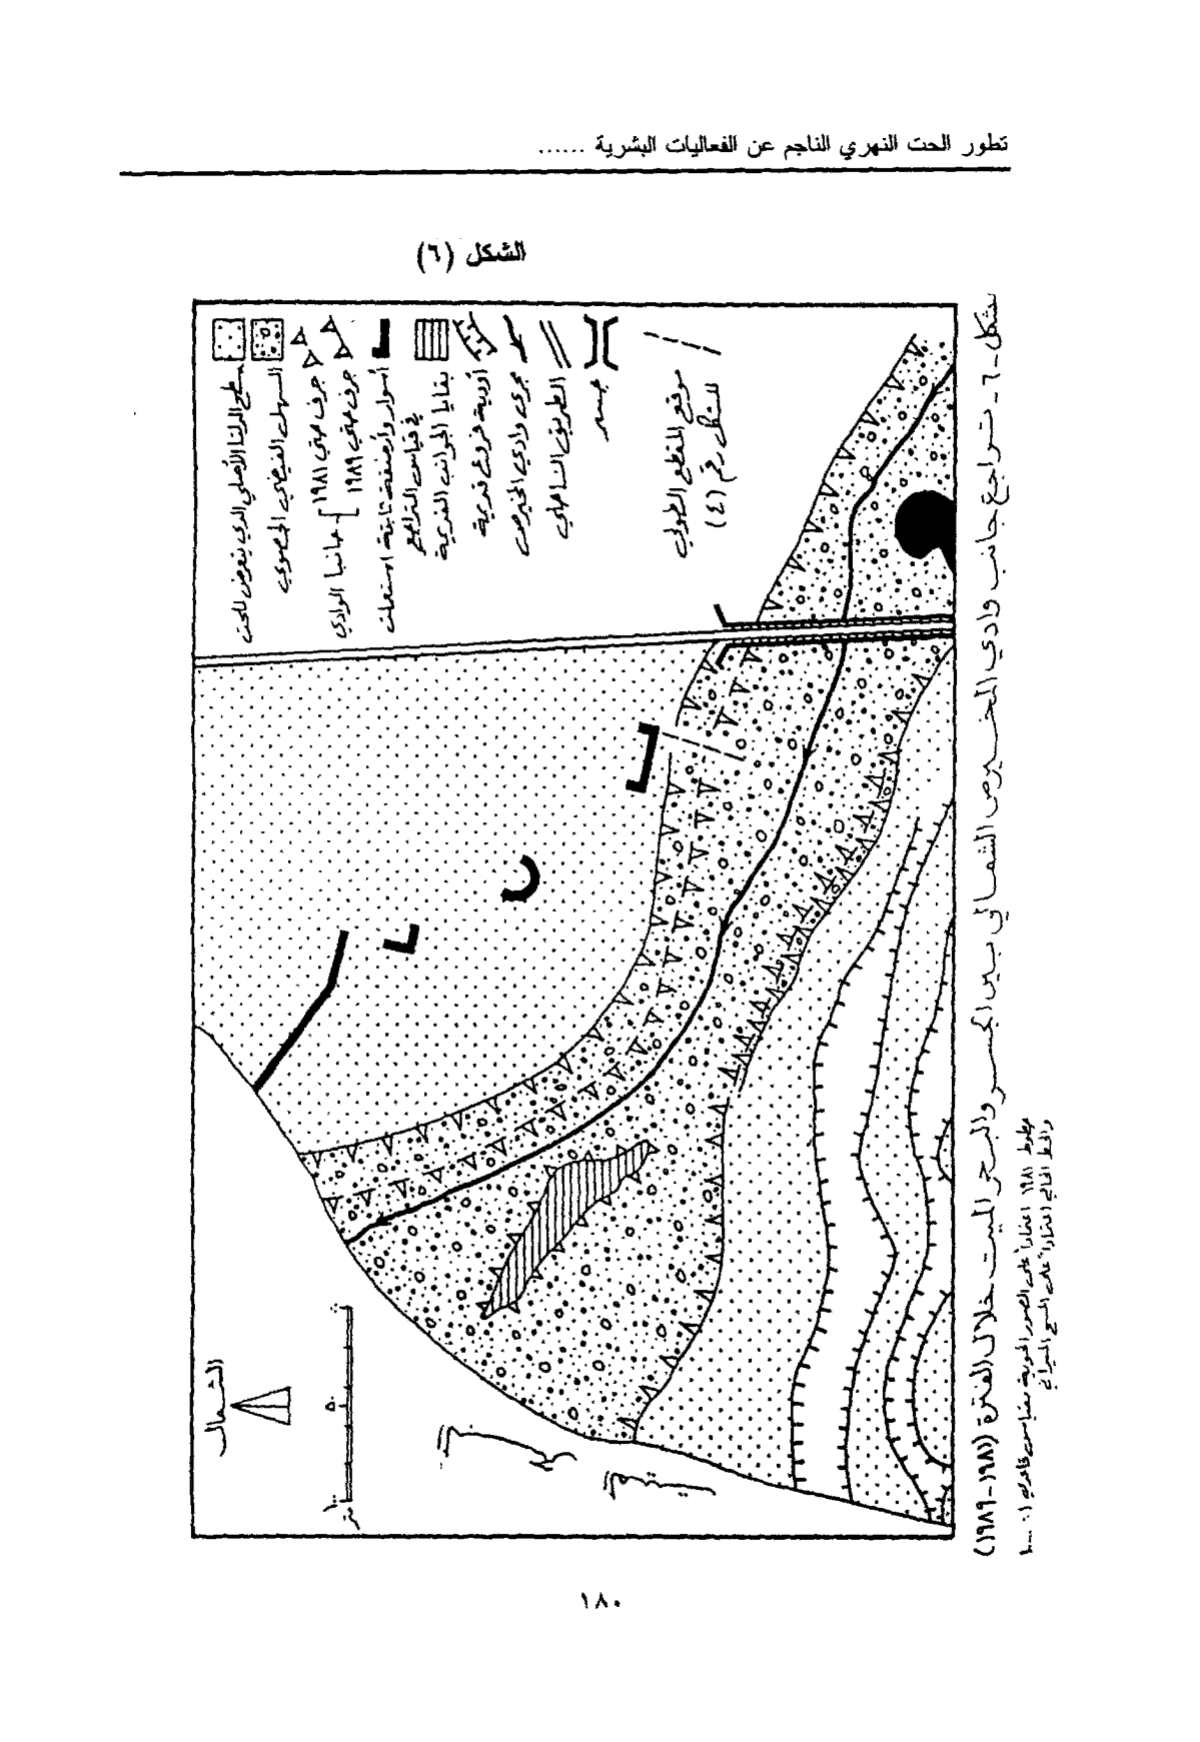 تطور الحت النهري الناجم عن الفعاليات البشرية ......
الشكل (٦)
سطح الدلتا الأصلي الذي يتعرض للحت
السهل الفيضي الحصوي
جرف حتي ١٩٨١
جرف حتي ١٩٨٩
جانبا الوادي
أسوار وأرصفة ثابتة استعملت
في قياس التراجع
بقايا الجوانب القديمة
أودية فروع قديمة
مجرى وادي المخيرص
الطريق الساحلي
جسر
موقع المقطع الطولي
للشكل رقم (٤)
الشمال
٥٠
١٠٠ متر
البحر الميت
شكل - ٦ - تراجع جانب وادي المخيرص الشمالي بين الجسر والبحر الميت خلال الفترة (١٩٨١-١٩٨٩)
خطوط ١٩٨١ اعتماداً على الصور الجوية بمقياس
والخط الحالي اعتماداً على المسح الميداني
١٨٠